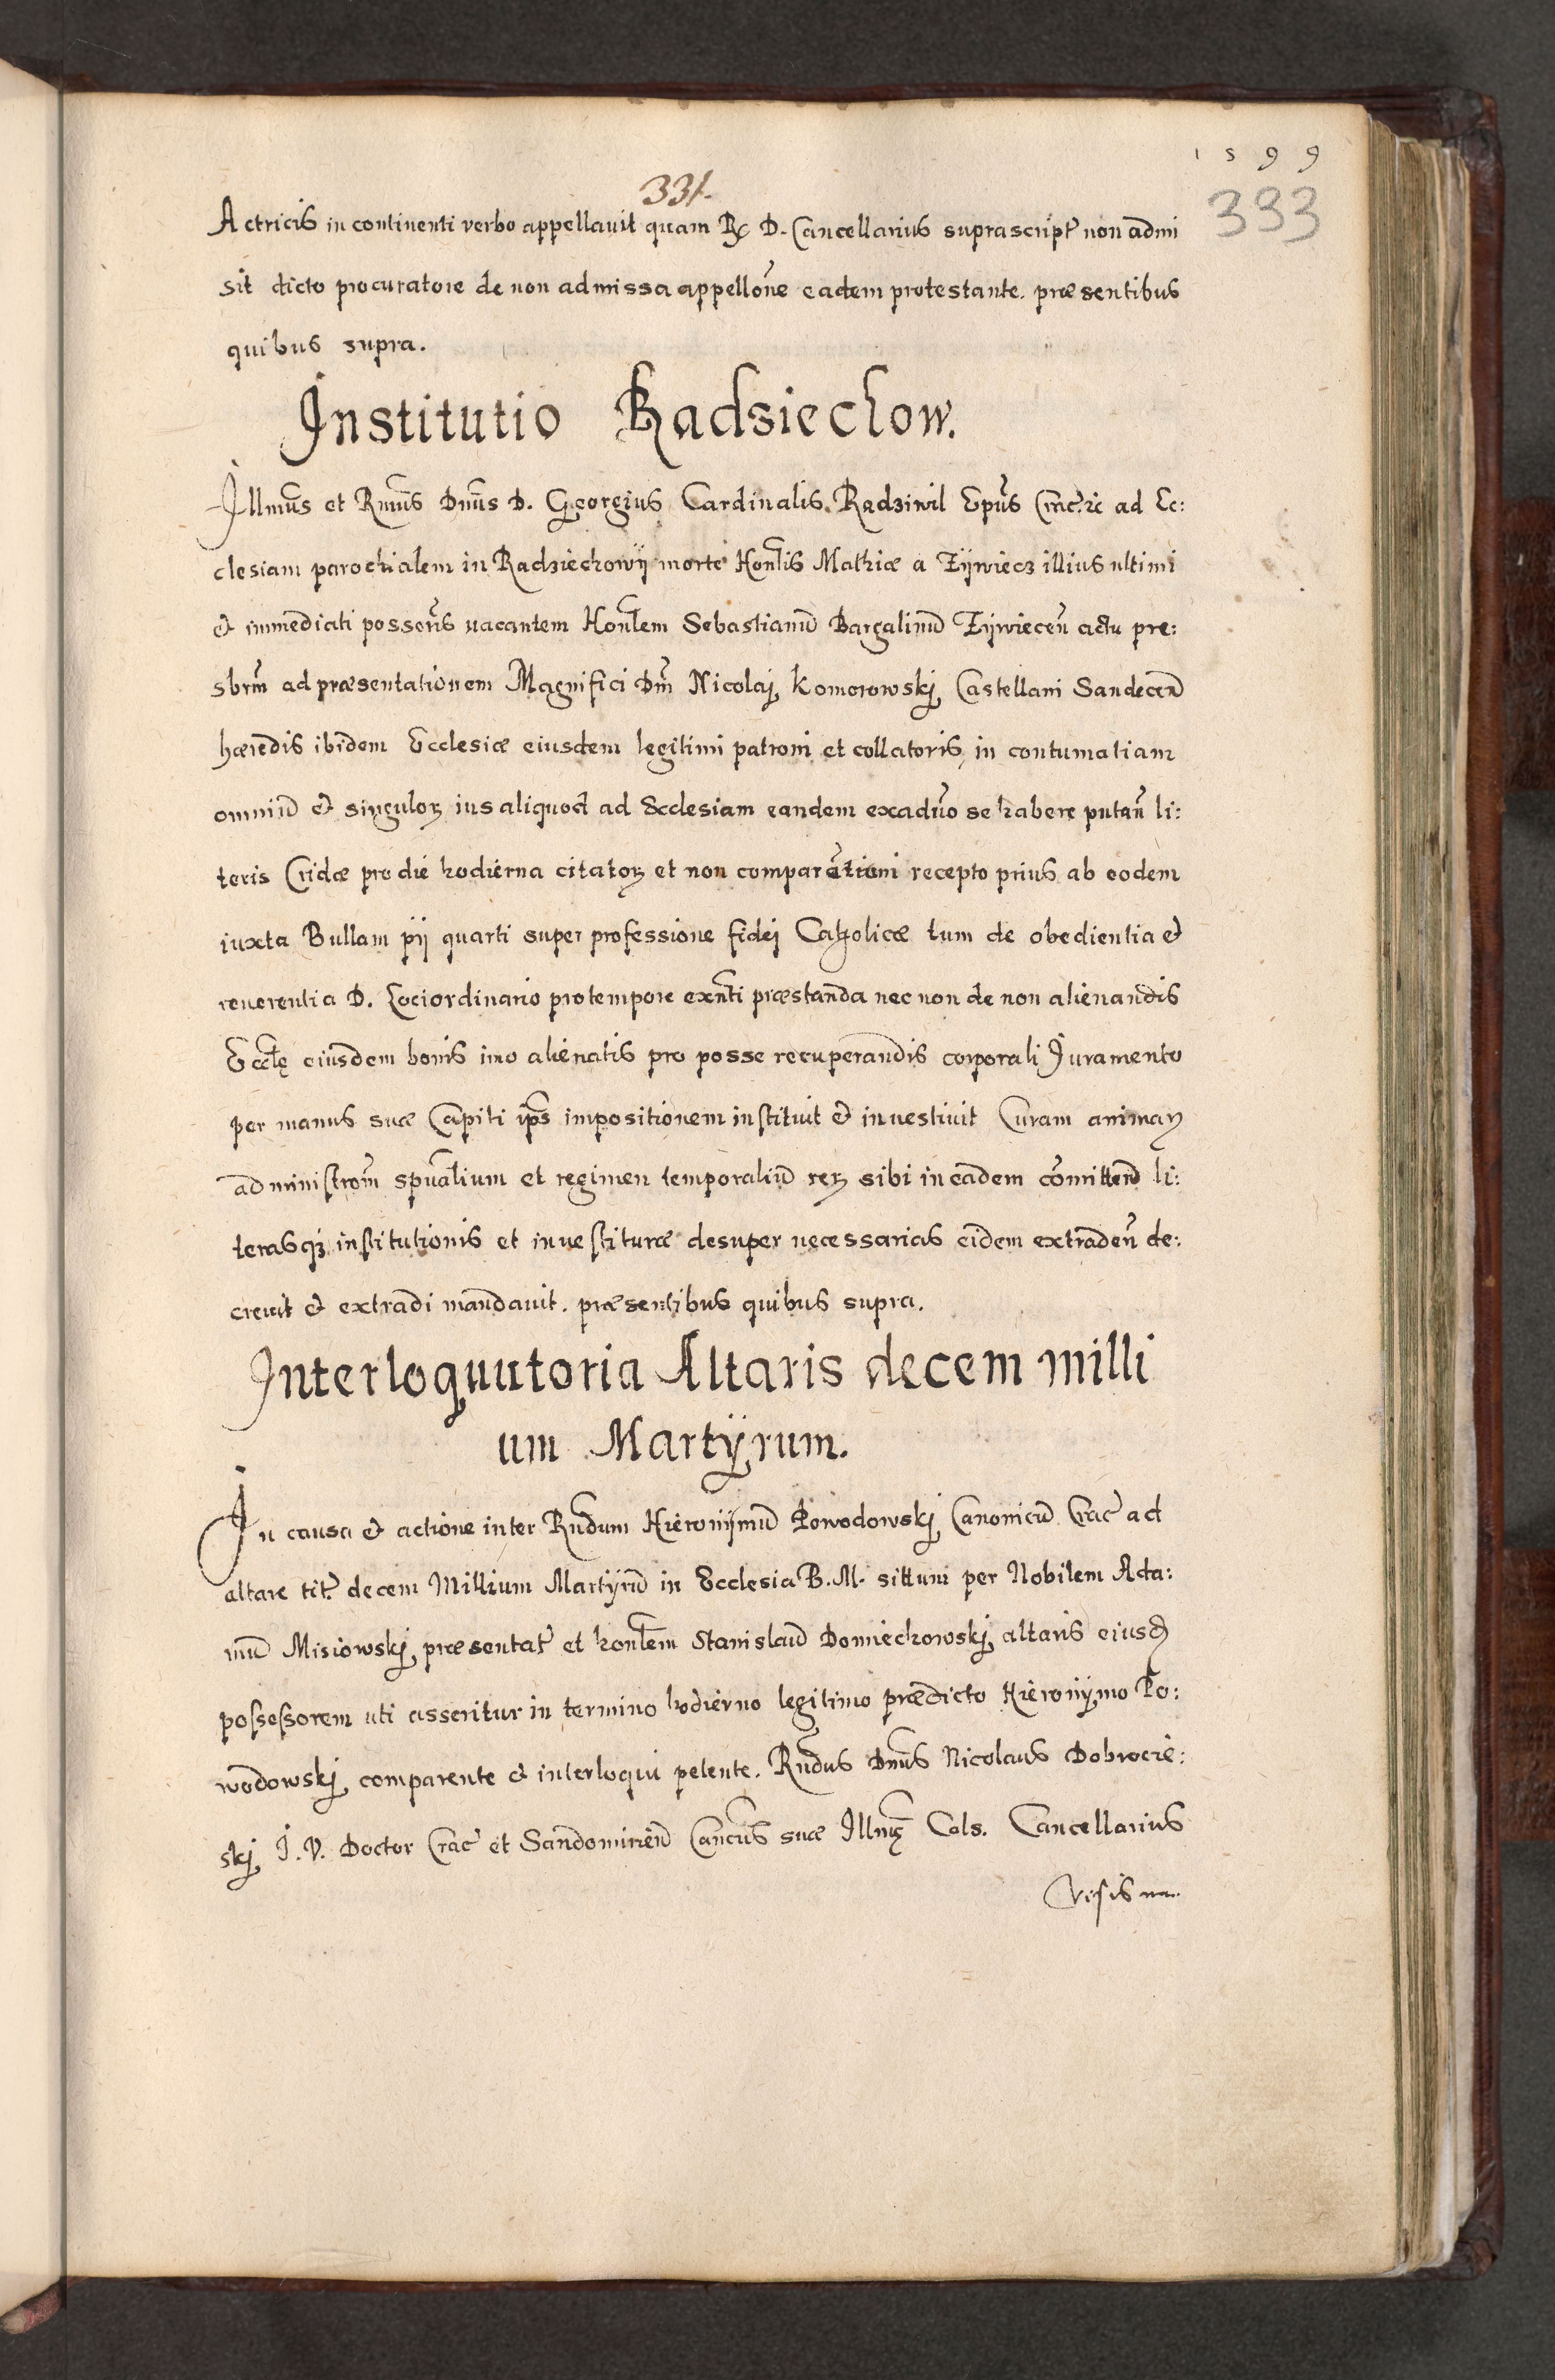 1599
331.
333
Actricis in continenti verbo appellavit quam R. D. Cancellarius suprascript̃ non admi
sit dicto procuratore de non admissa appellõne eadem protestante. præsentibus
quibus supra.
Institutio Radsiechow.
Illmũs et Rmũs Dnũs D. Georgius Cardinalis Radziwil Epũs Crac̃. ad Ec:
clesiam parochialem in Radziechowÿ morte Hont̃lis Mathiæ a Zÿwiecz illius ultimi
et immediati possesr̃is vacantem Honl̃em Sebastianũ Bargalinũ Zÿwieceñ actu pre:
sbrm̃ ad præsentationem Magnifici Dm̃ Nicolaj Komorowskj Castellani Sandeceñ
hæredis ibidem Ecclesiæ eiusdem legitimi patroni et collatoris, in contumatiam
omniũ et singuloꝝ ius aliquod ad Ecclesiam eandem ex adũo se habere putañ li:
teris Cridæ pro die hodierna citatoꝝ et non comparẽtium recepto prius ab eodem
iuxta Bullam pij quarti super professione fidej Catholicæ tum de obedientia et
reverentia D. Lociordinario protempore exñti præstanda nec non de non alienandis
Eccłę eiusdem bonis imo alienatis pro posse recuperandis corporali Juramento
per manus suæ Capiti ips̃ impositionem instituit et investivit Curam animaꝝ
administrõm spũalium et regimen temporaliũ reꝝ sibi in eadem cõmitteñ li:
terasqꝫ institutionis et investituræ desuper necessarias eidem extradeñ de:
crevit et extradi mandavit. præsentibus quibus supra.
Interloquutoria Altaris decem milli
um Martÿrum.
In causa et actione inter Rñdum Hieronÿmũ Powodowskj Canonicũ Crac̃ ad
altare tit̃. decem Millium Martÿrũ in Ecclesia B. M. sittum per Nobilem Ada:
mũ Misiowskj præsentat̃ et honl̃em Stanislaũ Domiechowskj altaris eiusd̃
possessorem uti asseritur in termino hodierno legitimo prædicto Hieronÿmo Po:
wodowskj comparente et interloqui petente. Rñdus Dnũs Nicolaus Dobrocie:
skj J. V. Doctor Crac̃ et Sandomirieñ Cancũs suæ Illmę Cels. Cancellarius
Visis